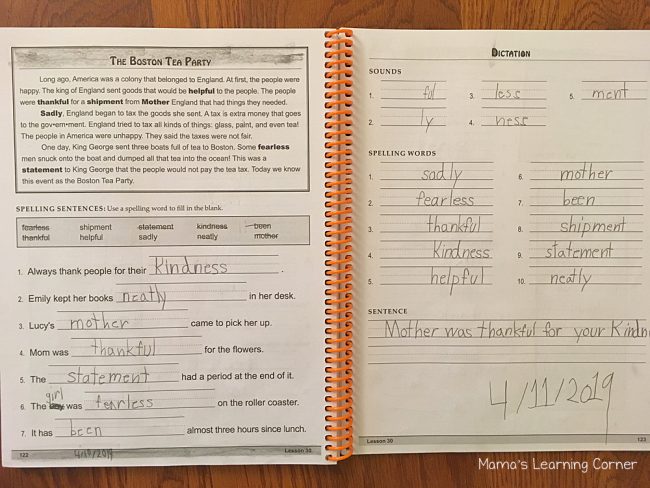 THE BOSTON TEA PARTY
Long ago, America was a colony that belonged to England. At first, the people were
happy. The king of England sent goods that would be helpful to the people. The people
were thankful for a shipment from Mother England that had things they needed.
Sadly, England began to tax the goods she sent. A tax is extra money that goes
to the government. England tried to tax all kinds of things: glass, paint, and even tea!
The people in America were unhappy. They said the taxes were not fair.
One day, King George sent three boats full of tea to Boston. Some fearless
men snuck onto the boat and dumped all that tea into the ocean! This was a
statement to King George that the people would not pay the tea tax. Today we know
this event as the Boston Tea Party.
SPELLING SENTENCES: Use a spelling word to fill in the blank.
fearless shipment statement kindness been
thankful helpful sadly neatly mother
1. Always thank people for their Kindness .
2. Emily kept her books neatly in her desk.
3. Lucy's mother came to pick her up.
4. Mom was thankful for the flowers.
5. The statement had a period at the end of it.
girl
6. The boy was fearless on the roller coaster.
7. It has been almost three hours since lunch.
122 4/10/2019 Lesson 30
DICTATION
SOUNDS
1. ful 3. less 5. ment
2. ly 4. ness
SPELLING WORDS
1. sadly 6. mother
2. fearless 7. been
3. thankful 8. shipment
4. Kindness 9. statement
5. helpful 10. neatly
SENTENCE
Mother was thankful for your Kindn
4/11/2019
Lesson 30 123
Mama's Learning Corner